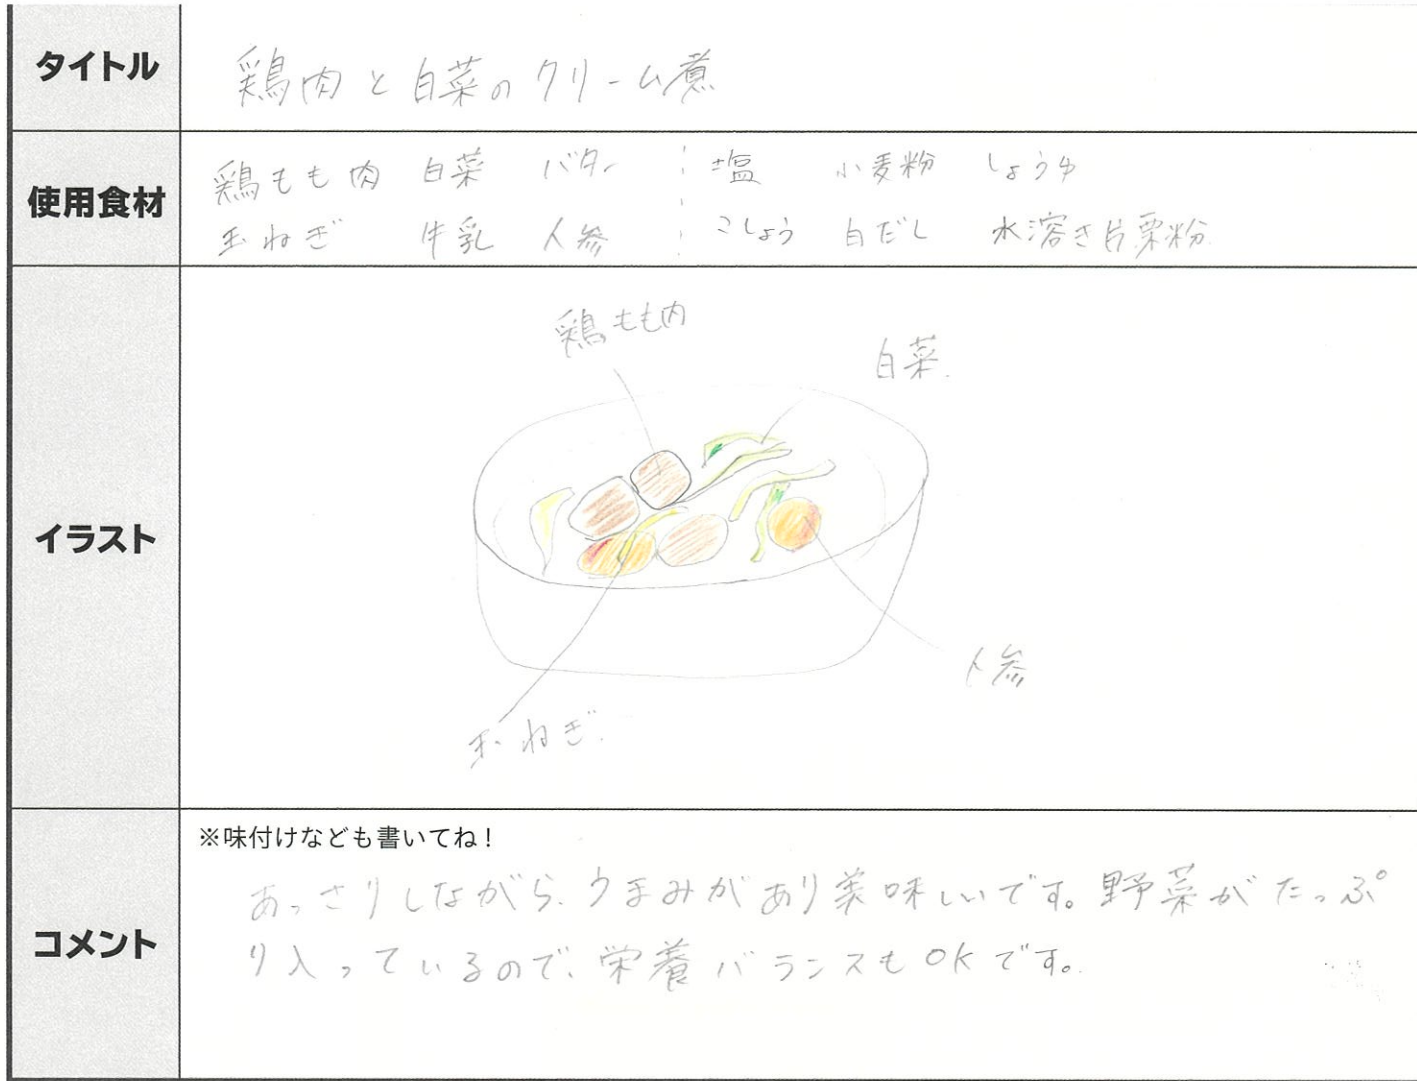 タイトル
鶏肉と白菜のクリーム煮
使用食材
鶏もも肉 白菜 バター 塩 小麦粉 しょうゆ
玉ねぎ 牛乳 人参 こしょう 白だし 水溶き片栗粉
イラスト
鶏もも肉
白菜
人参
玉ねぎ
コメント
※味付けなども書いてね!
あっさりしながら、うまみがあり美味しいです。野菜がたっぷ
り入っているので、栄養バランスもOKです。